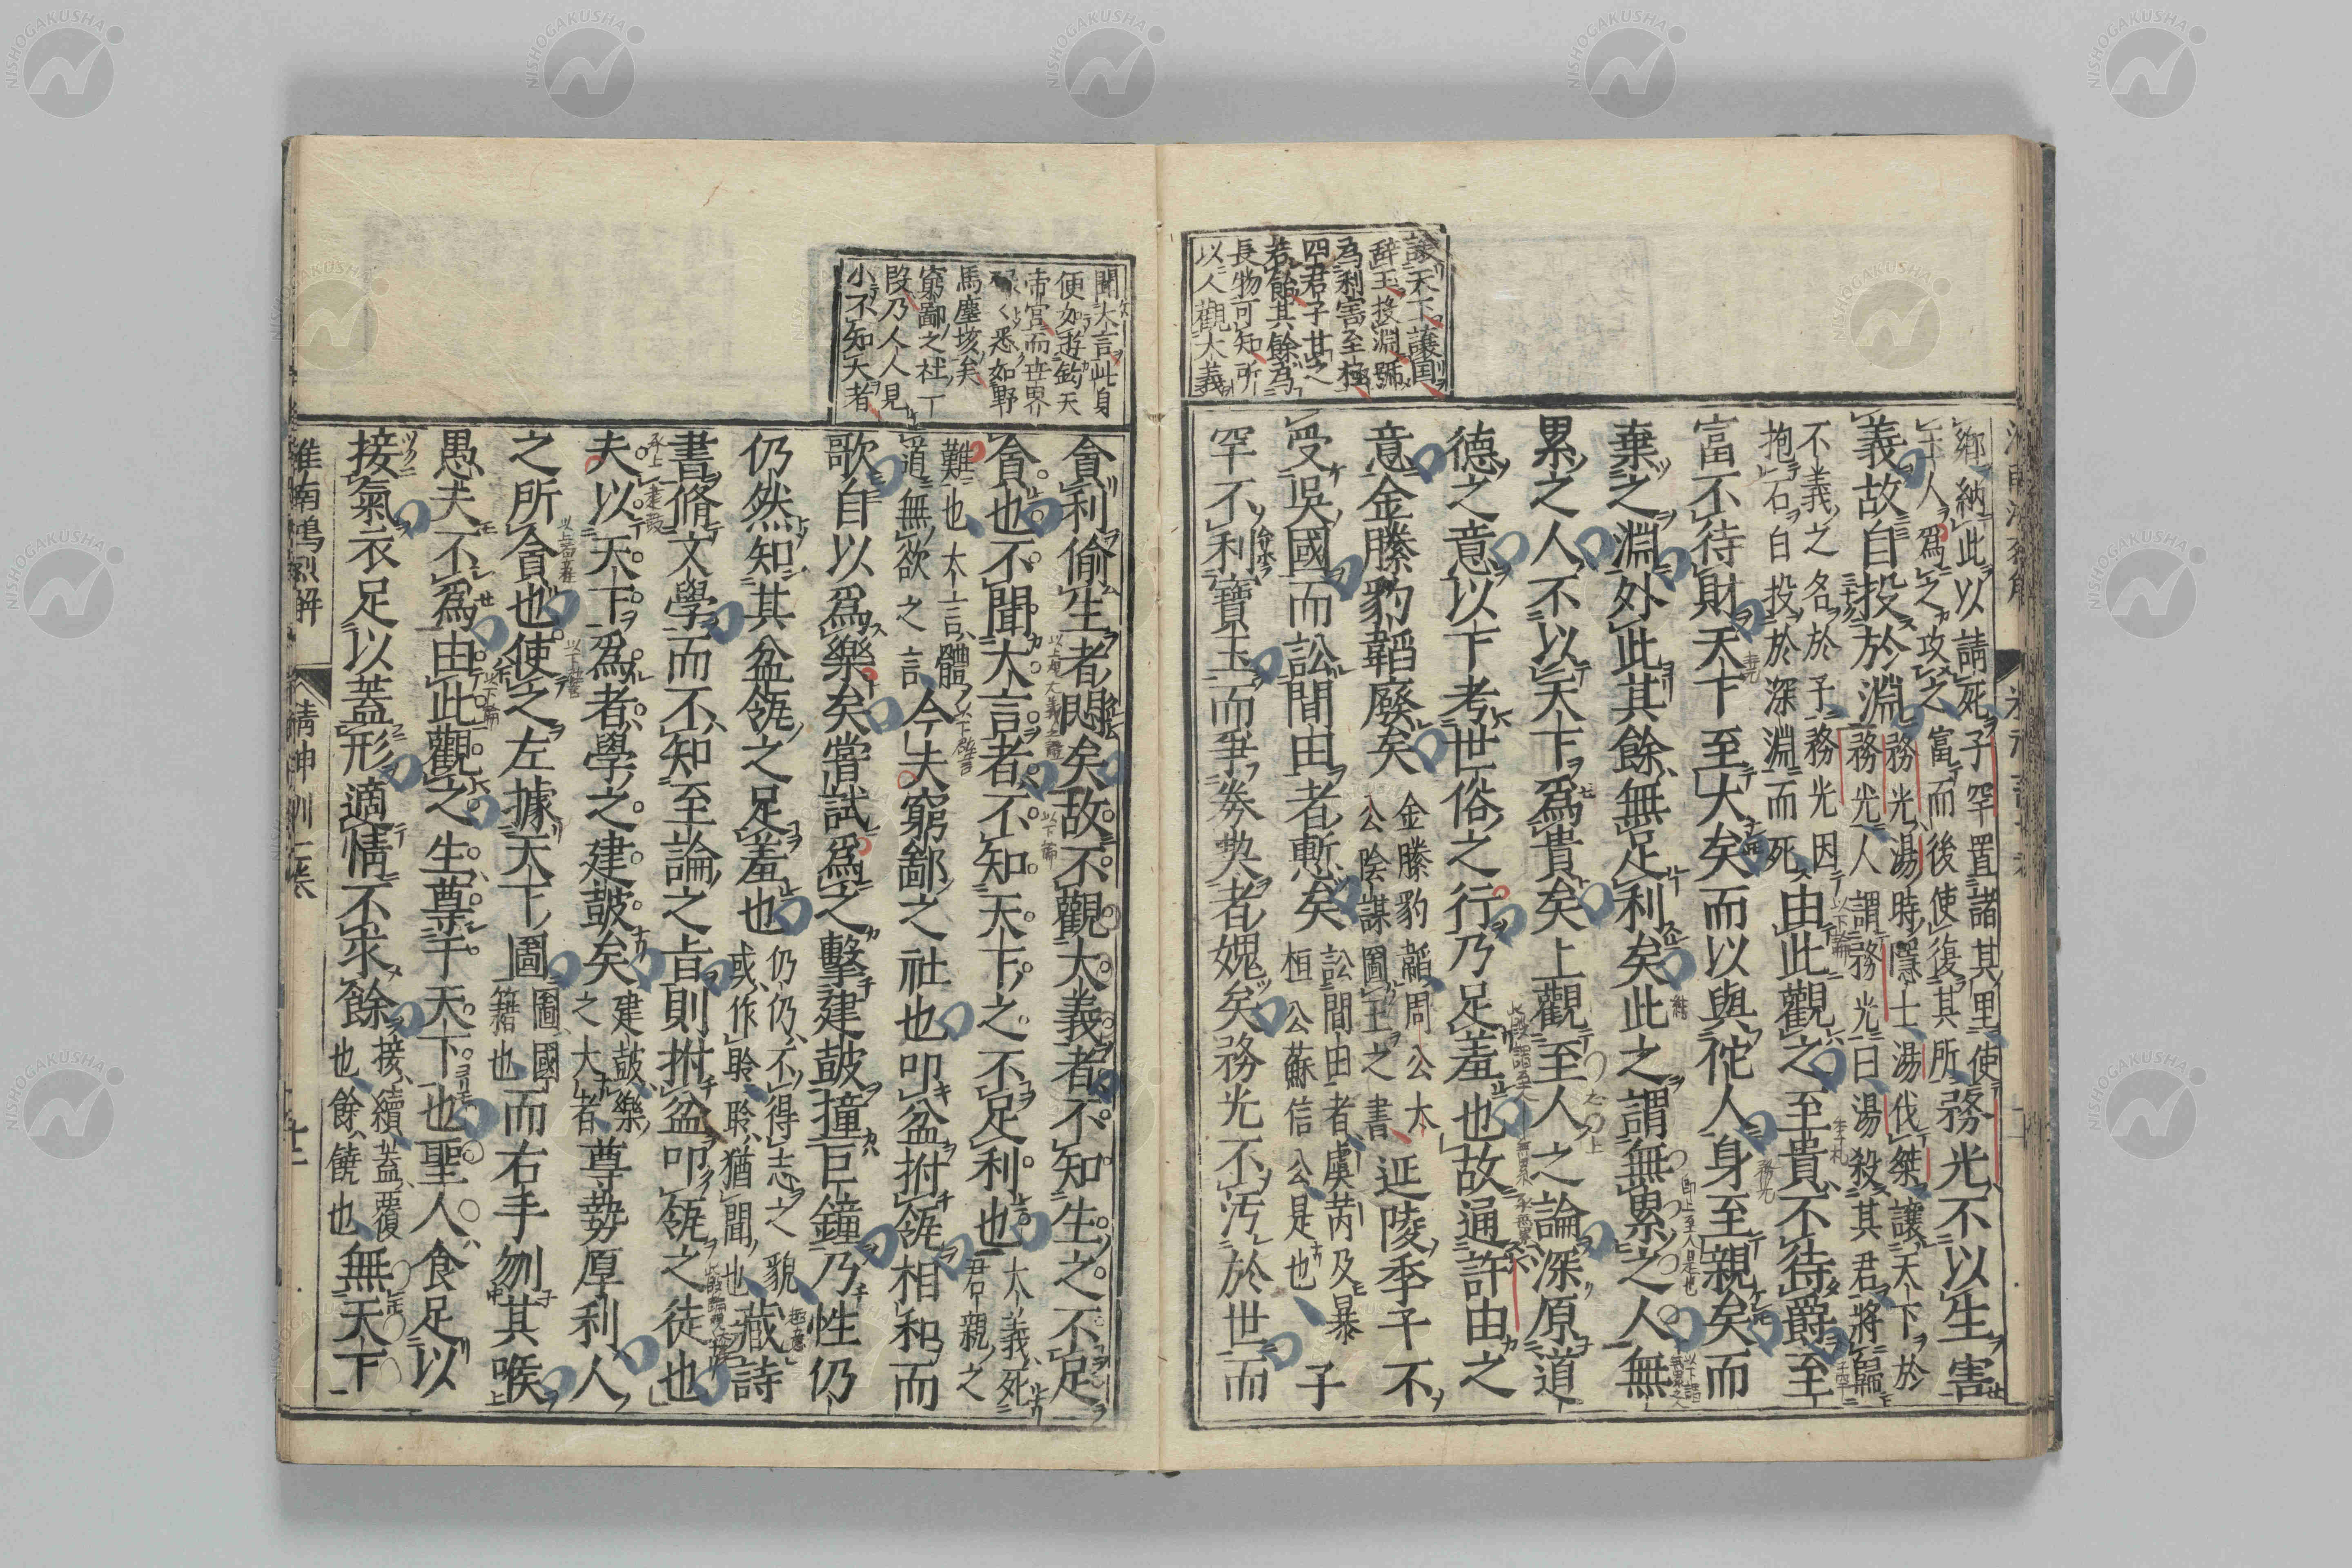 讓天下讓国
辞玉投淵號
為利害至極
四君子甘之
若飴其餘為
長物可知所
以人觀大義
鄉納此以請死子罕置諸其里使
玉人爲之攻之富而後使復其所
務光不以生害
義故自投於淵
務光湯時隱士湯伐桀讓天下於
務光人謂務光曰湯殺其君將歸
不義之名於子務光因
抱石白投於深淵而死
由此觀之至貴不待爵至
富不待財天下至大矣而以與佗人身至親矣而
棄之淵外此其餘無足利矣此之謂無累之人無
累之人不以天下爲貴矣上觀至人之論深原道
德之意以下考世俗之行乃足羞也故通許由之
意金縢豹韜廢矣
金縢豹韜周公大
公陰謀圖王之書
延陵季子不
受吳國而訟間由者慙矣
訟間由者虞芮及暴
桓公蘇信公是也
子
罕不利寶玉而爭券契者媿矣務光不汚於世而
聞大言此身
便如遊鈞天
帝宮而世界
悉如野
馬塵垓矣
窮鄙之社一
段乃人人見
小不知天者
貪利偷生者悶矣故不觀大義者不知生之不足
貪也不聞大言者不知天下之不足利也
大義死
君親之
難也大言體
道無欲之言
今夫窮鄙之社也叩盆拊瓴相和而
歌自以爲樂矣嘗試爲之擊建鼓撞巨鐘乃性仍
仍然知其盆瓴之足羞也
仍仍不得志之貌
或作聆聆猶聞也
藏詩
書脩文學而不知至論之旨則拊盆叩瓴之徒也
夫以天下爲者學之建鼓矣
建鼓樂
之大者
尊勢厚利人
之所貪也使之左據天下圖
圖國
籍也
而右手刎其喉
愚夫不爲由此觀之生尊乎天下也聖人食足以
接氣衣足以蓋形適情不求餘
接續蓋覆
也餘饒也
無天下
淮南鴻烈解 精神訓 七卷 十二